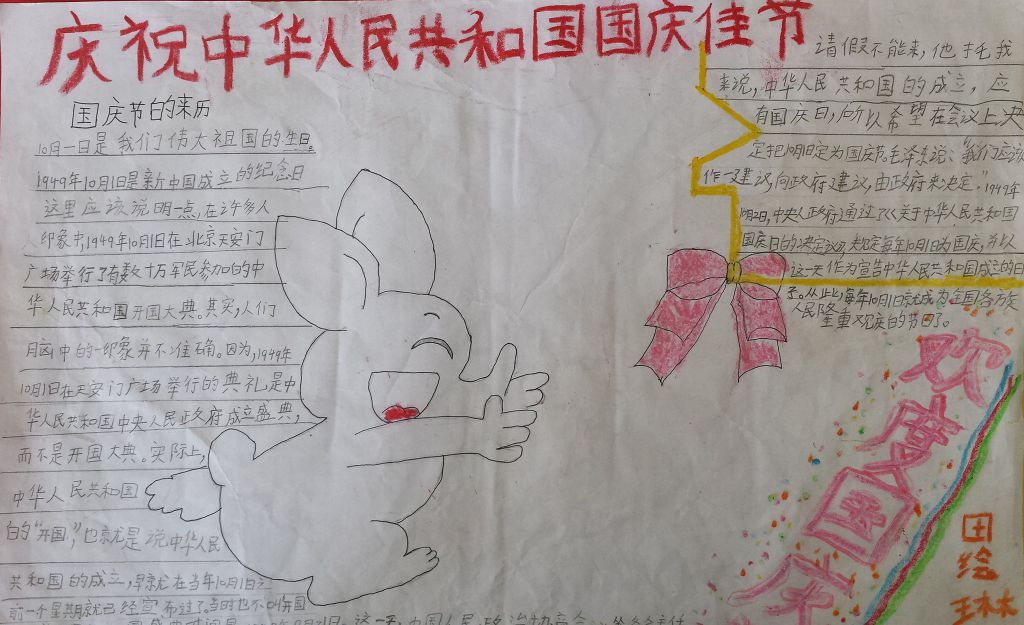 庆祝中华人民共和国国庆佳节
国庆节的来历
10月一日是我们伟大祖国的生日。
1949年10月1日是新中国成立的纪念日
这里应该说明一点,在许多人
印象中,1949年10月1日在北京天安门
广场举行了有数十万军民参加的中
华人民共和国开国大典。其实,人们
月脑中的一印象并不准确。因为,1949年
10月1日在天安门广场举行的典礼是中
华人民共和国中央人民政府成立盛典,
而不是开国大典。实际上,
中华人民共和国
的“开国”,也就是说中华人民
共和国的成立,早就在当年10月1日之
前一个星期就已经宣布过了。当时也不叫开国
这一天,中国人民政治协商会
请假不能来,他托我
来说,中华人民共和国的成立,应
有国庆日,所以希望在会议上决
定把10月1日定为国庆节。毛泽东说、“我们应该
作一建议,向政府建议,由政府来决定。”1949年
中央人政府通过了《关于中华人民共和国
国庆日的决定议》,规定每年10月1日为国庆,并以
这一天作为宣告中华人民共和国成立的日
子。从此,每年10月1日就成为全国各方族
人民隆重欢庆的节日了。
欢度国庆
田绘
王林林